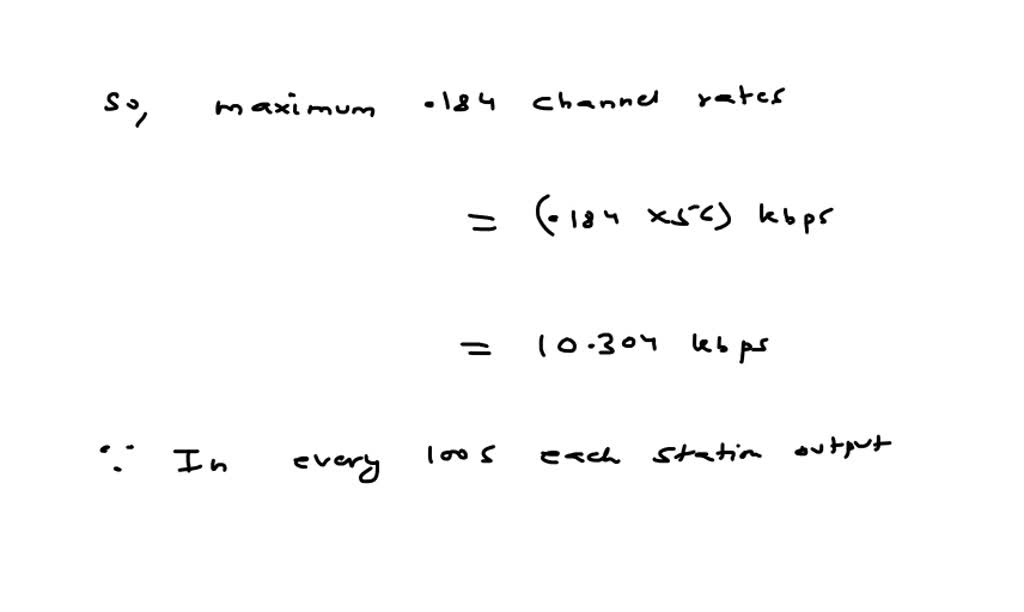 So, maximum .184 channel rates
= (.184 x56) kbps
= 10.304 kbps
∵ In every 100s each station output